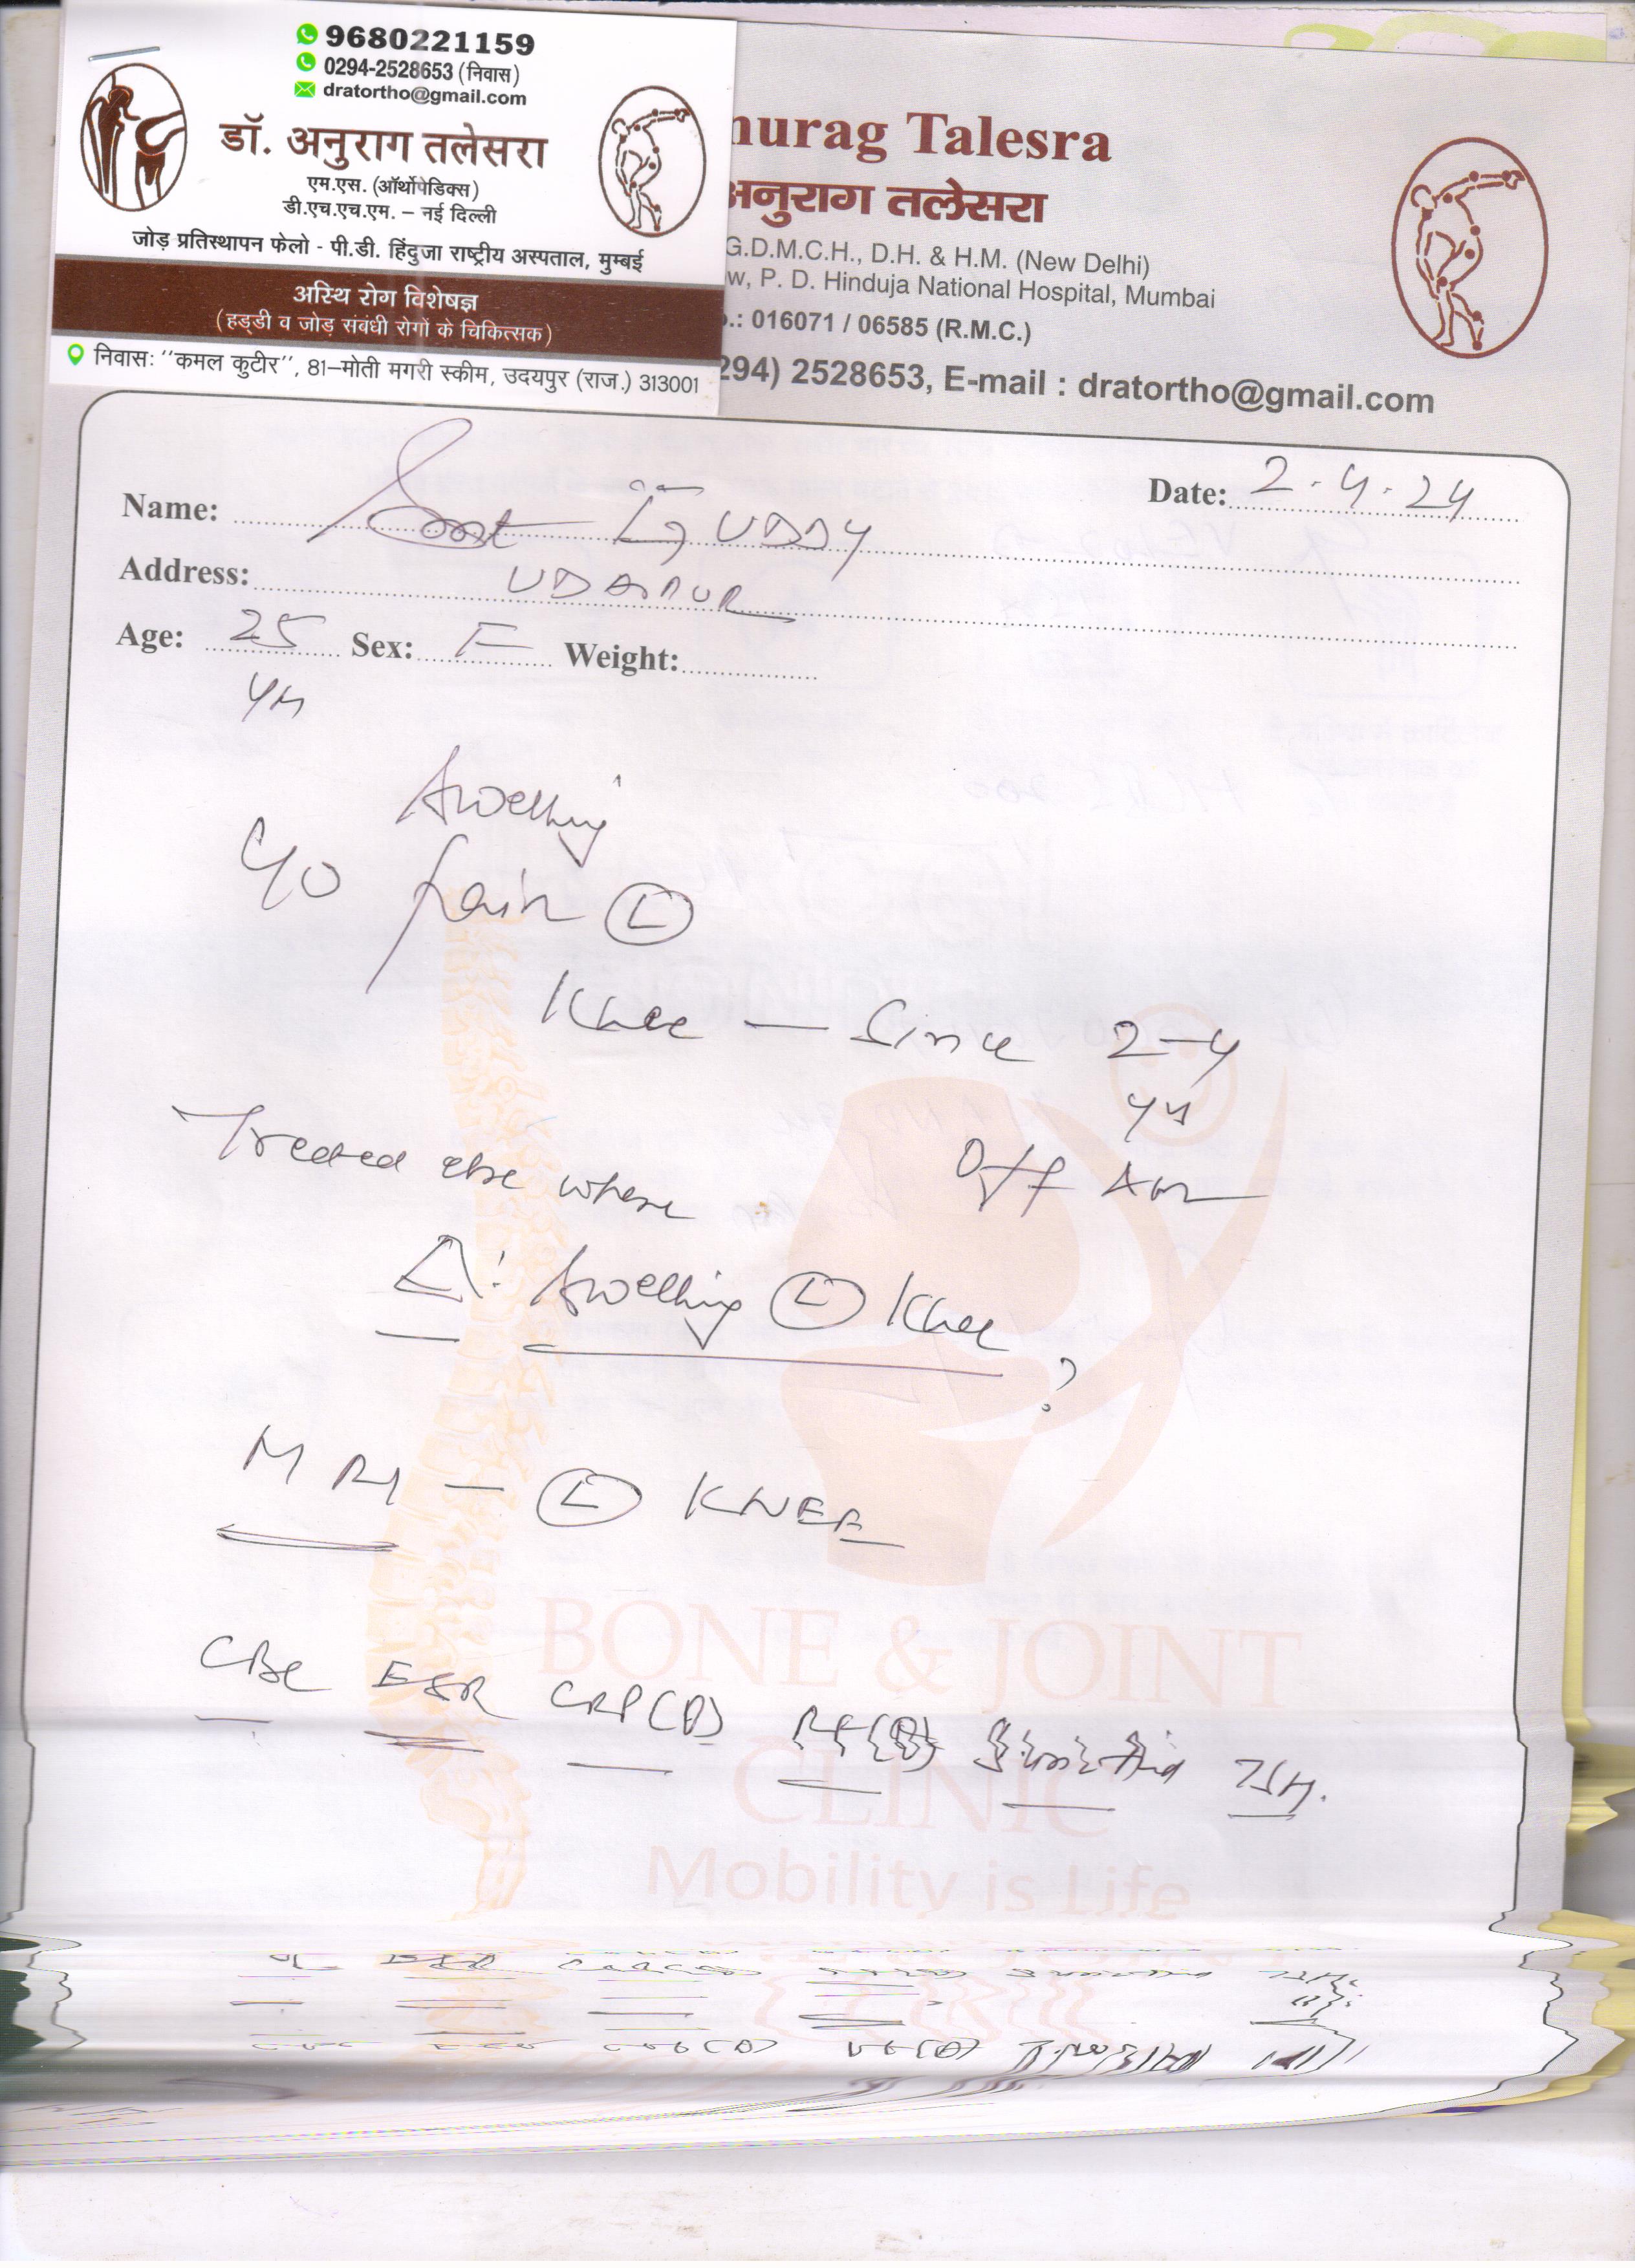 9680221159
0294-2528653 (निवास)
dratortho@gmail.com
डॉ. अनुराग तलेसरा
एम.एस. (ऑर्थोपेडिक्स)
डी.एच.एच.एम. – नई दिल्ली
जोड़ प्रतिस्थापन फेलो - पी.डी. हिंदुजा राष्ट्रीय अस्पताल, मुम्बई
अस्थि रोग विशेषज्ञ
(हड्डी व जोड़ संबंधी रोगों के चिकित्सक)
निवास: ''कमल कुटीर'', 81–मोती मगरी स्कीम, उदयपुर (राज.) 313001
nurag Talesra
अनुराग तलेसरा
G.D.M.C.H., D.H. & H.M. (New Delhi)
w, P. D. Hinduja National Hospital, Mumbai
.: 016071 / 06585 (R.M.C.)
294) 2528653, E-mail : dratortho@gmail.com
Name: GUDDY
Date: 2.4.24
Address: UDAIPUR
Age: 25 Sex: F Weight:
Swelling
C/O Pain (L)
Knee — Since 2-4
Treated else where
Off &
Δ: Swelling (L) Knee ?
MRI — (L) KNEE
CBC ESR CRP(Q) RF(Q) TSH.
BONE & JOINT
CLINIC
Mobility is Life